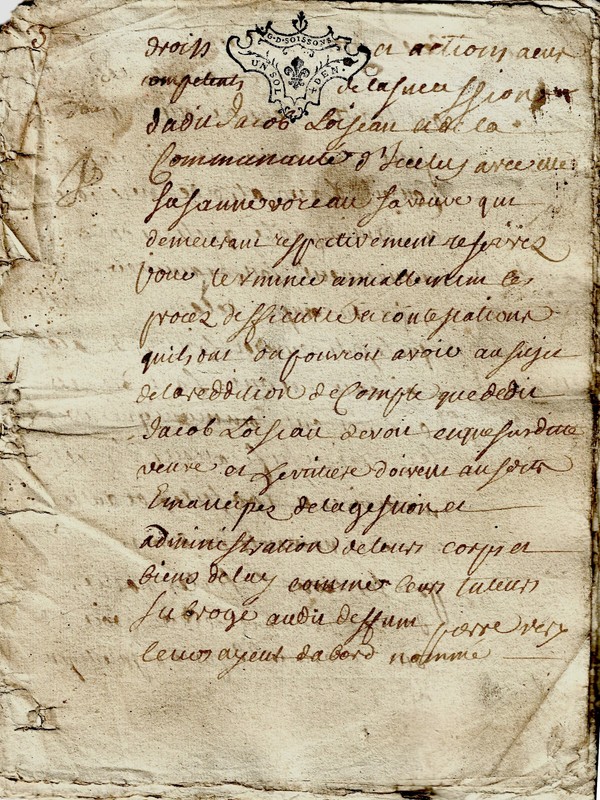 G·D·SOISSONS
UN SOL 4 DEN.
droits et actions a eux
competants de la succession
dudit Jacob Loiseau et de la
Communauté d'Icelluy avec
Susanne voreau sa veuve qui
demeurant respectivement reservez
pour terminer amiablement les
procez difficulté et contestations
quils ont ou pouroit avoir au sujet
de la reddition de Compte que ledit
Jacob Loiseau devoit et que sa ditte
veuve et heritiere doivent ausdits
Emancipez de la gestion et
administration de leurs corps et
biens de luy comme leurs tuteurs
Subrogé audit deffunt pierre
le nos ayent dabord nommé